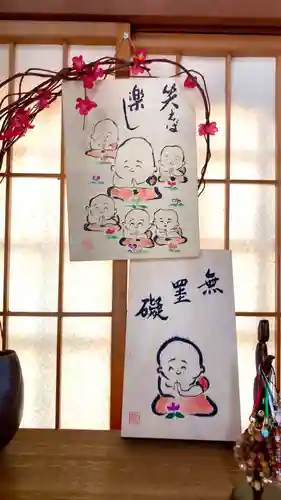 笑えば
楽し
無罣礙